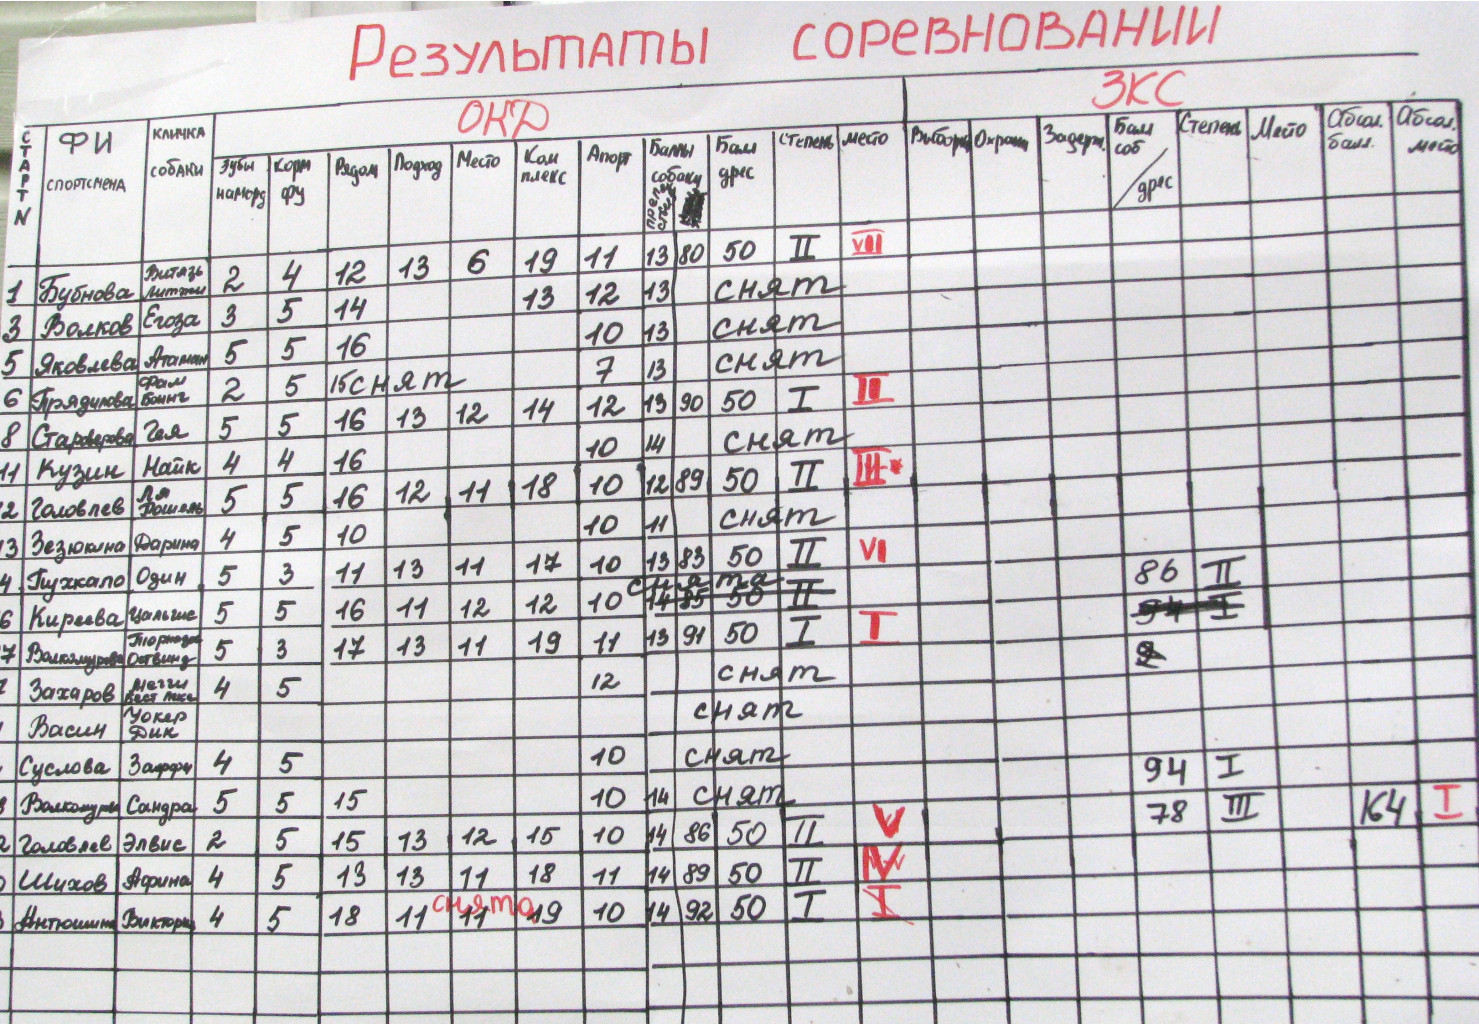 Результаты соревновании
ОКД ЗКС
СТАРТ N ФИ спортсмена кличка собаки Зубы наморд Корм фу Рядом Подход Место Комплекс Апорт Баллы собаки препятствия Балл дрес Степень место Выборка Охрана Задерж. Балл соб/дрес Степень Место Абсол. балл. Абсол. место
1 Бубнова Витязь 2 4 12 13 6 19 11 13 80 50 II VIII
3 Волков Егоза 3 5 14 13 12 13 снят
5 Яковлева Атаман 5 5 16 10 13 снят
6 Прядилова Фам Боинг 2 5 15 снят 7 13 снят
8 Староверова Гея 5 5 16 13 12 14 12 13 90 50 I II
11 Кузин Найк 4 4 16 10 14 снят
12 Головлев Ля Рошель 5 5 16 12 11 18 10 12 89 50 II III
13 Зезюкина Дарина 4 5 10 10 11 снят
4 Пужкало Один 5 3 11 13 11 17 10 13 83 50 II VI 86 II
снята
6 Киреева Цальгис 5 5 16 11 12 12 10 14 85 50 II 94 I
7 Волкомурова Оствинд 5 3 17 13 11 19 11 13 91 50 I I
Захаров Мегги 4 5 12 снят
Васин Уокер Дик снят
Суслова Заффи 4 5 10 снят 94 I
Сандра 5 5 15 10 14 снят 78 III 164 I
Головлев Элвис 2 5 15 13 12 15 10 14 86 50 II V
Шихов Афина 4 5 13 13 11 18 11 14 89 50 II IV
снята
Антюшина 4 5 18 11 11 19 10 14 92 50 I I